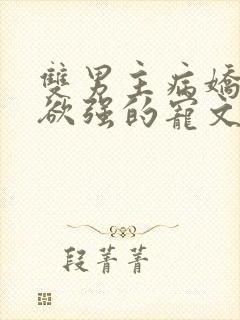 雙男主病嬌
欲强的寵文
段菁菁